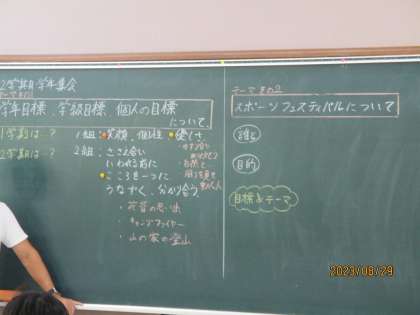 2学期 学年集会
テーマその1
学年目標、学級目標、個人の目標
について
1学期は…?
1組:笑顔、個性、優しさ
2学期は…?
2組:ささえ合い
いわれる前に
こころを一つに
うなずく、分かり合う
・キャンプファイヤー
・山の家の登山
テーマ その2
スポーツフェスティバルについて
目的
目標&テーマ
2023/08/29